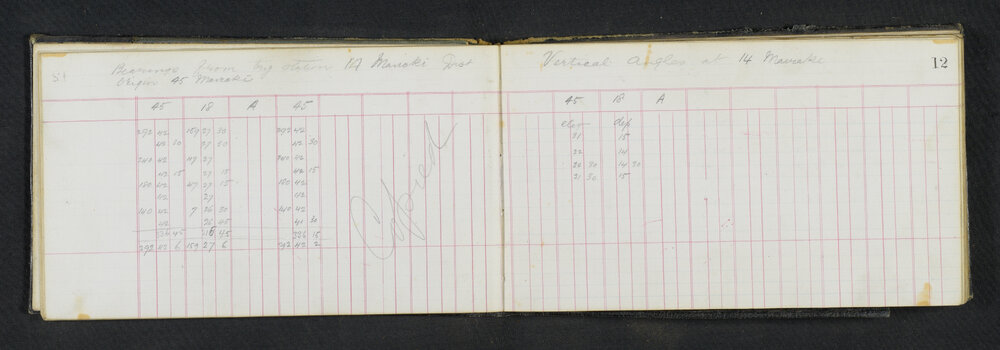 Bearings from trig station 14 Maraki Dist
Origin 45 Maraki
45 18 A 45
292 42 159 27 30 292 42
42 30 27 30 42 30
240 42 117 27 240 42
42 15 27 15 42 15
180 42 47 27 15 180 42
42 27 42
140 42 7 26 30 140 42
42 26 45 41 30
336 45 216 45 336 15
292 42 6 159 27 6 292 42 2
Copied
Vertical Angles at 14 Maraki
12
45 18 A
elev dep
21 15
22 14
20 30 14 30
21 30 15